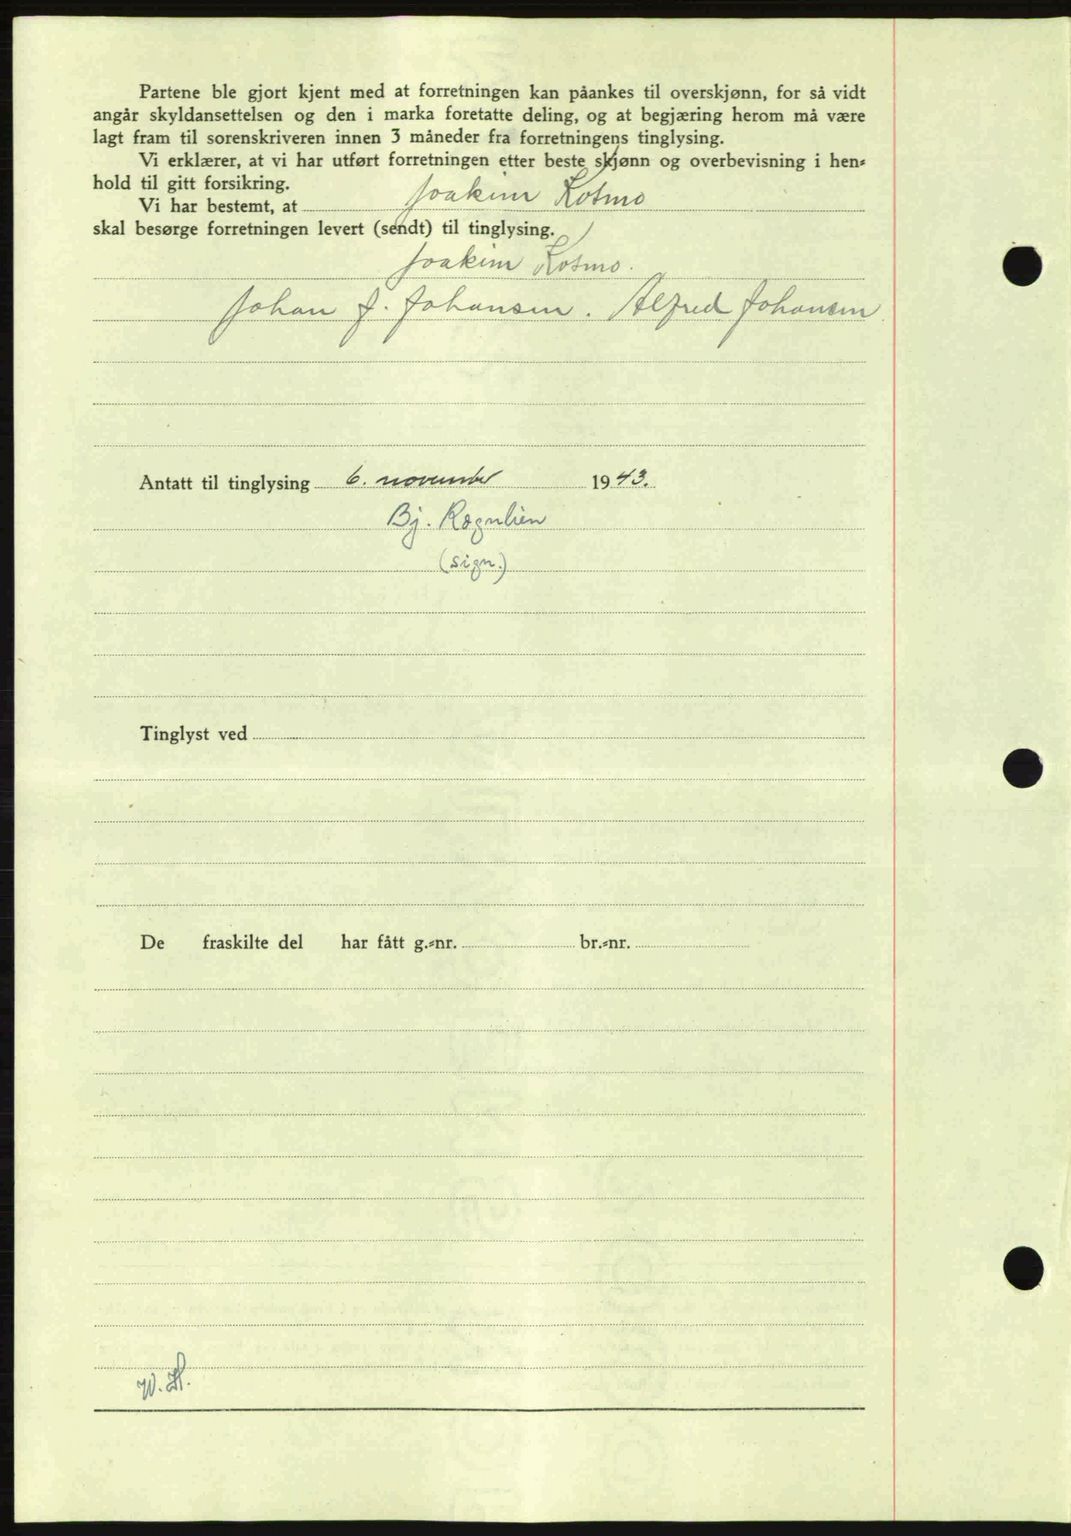 Partene ble gjort kjent med at forretningen kan påankes til overskjønn, for så vidt
angår skyldansettelsen og den i marka foretatte deling, og at begjæring herom må være
lagt fram til sorenskriveren innen 3 måneder fra forretningens tinglysing.
Vi erklærer, at vi har utført forretningen etter beste skjønn og overbevisning i hen=
hold til gitt forsikring.
Vi har bestemt, at Joakim Kosmo
skal besørge forretningen levert (sendt) til tinglysing.
Joakim Kosmo.
Johan J. Johansen. Alfred Johansen.
Antatt til tinglysing 6. november 1943.
Bj. Rognlien
(sign.)
Tinglyst ved
De fraskilte del har fått g.=nr. br.=nr.
W. H.